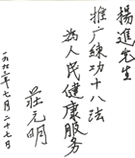 楊進先生
推广練功十八法
為人民健康服务
莊元明
一九九二年七月二十七日